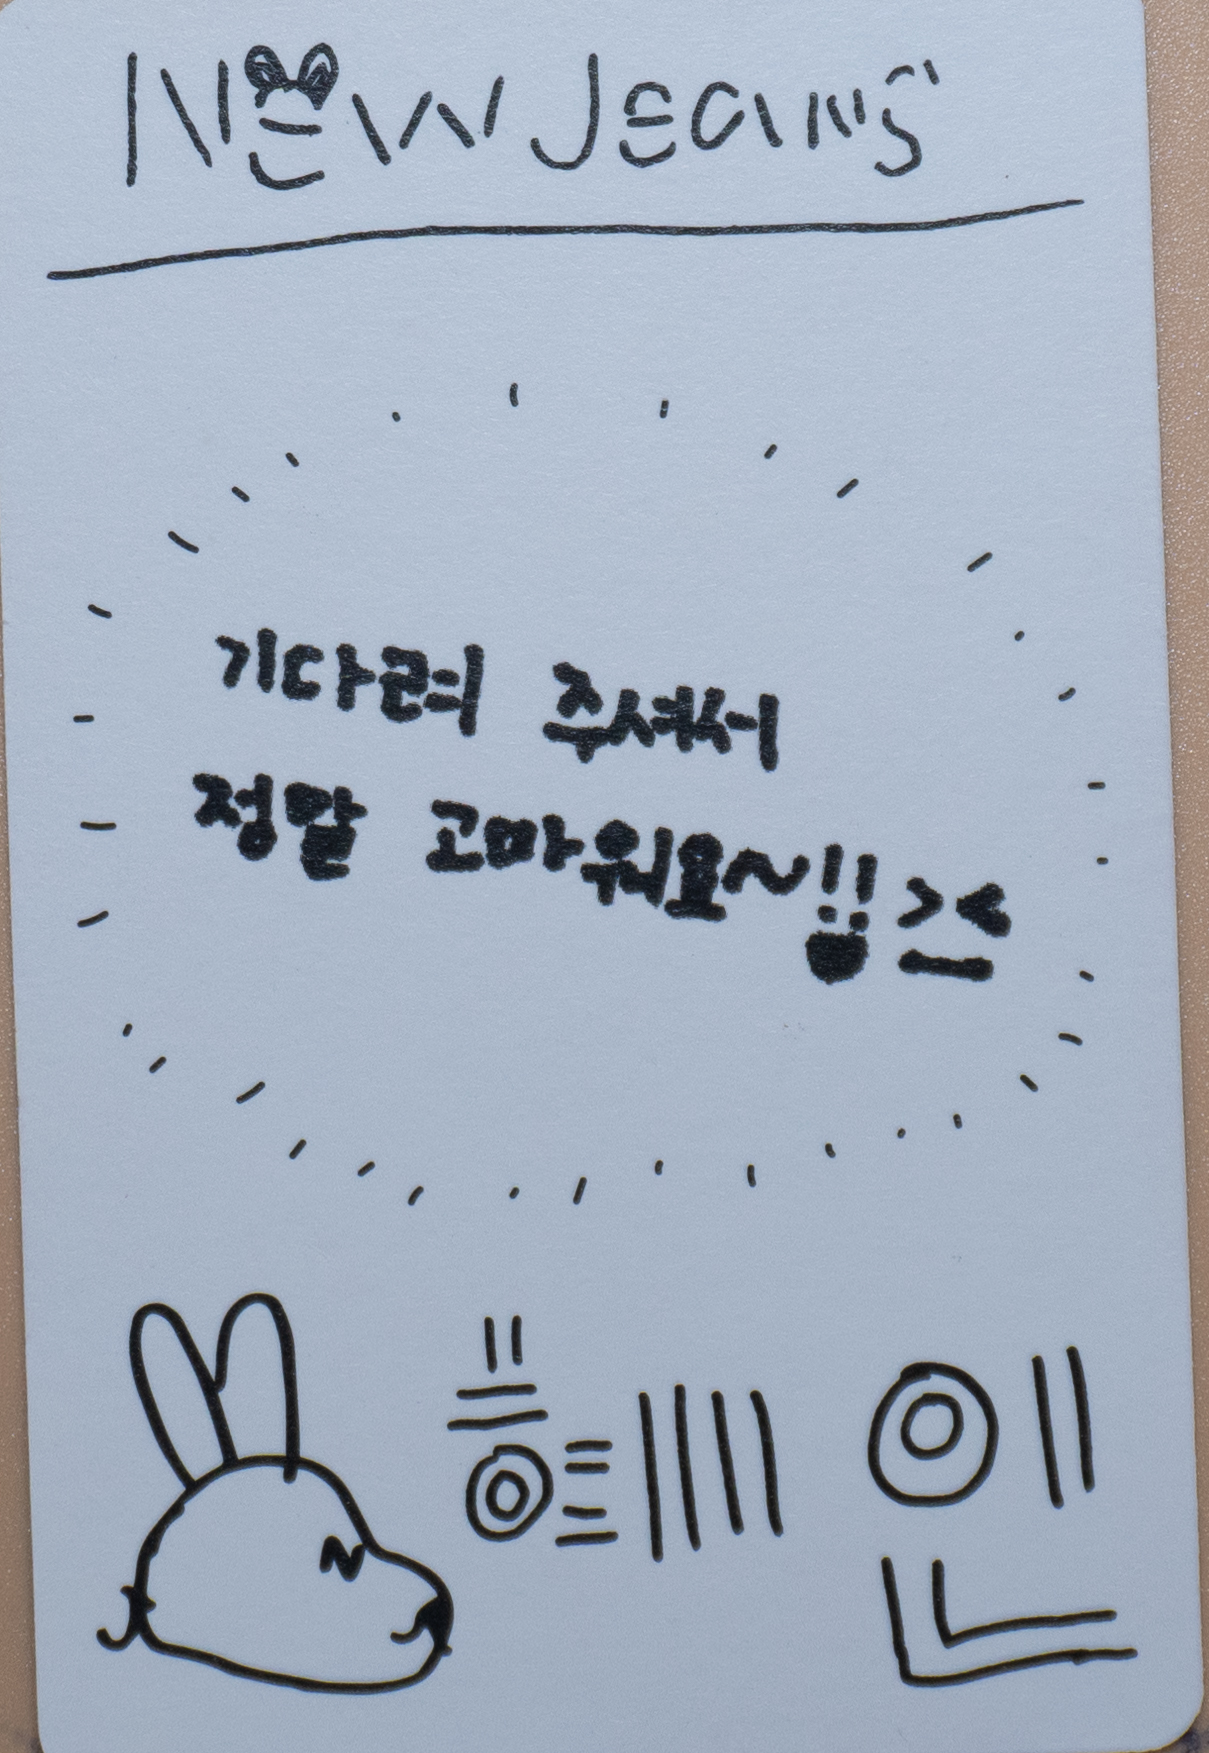 NEW JEANS
기다려 주셔서
정말 고마워요~!! ><
혜인